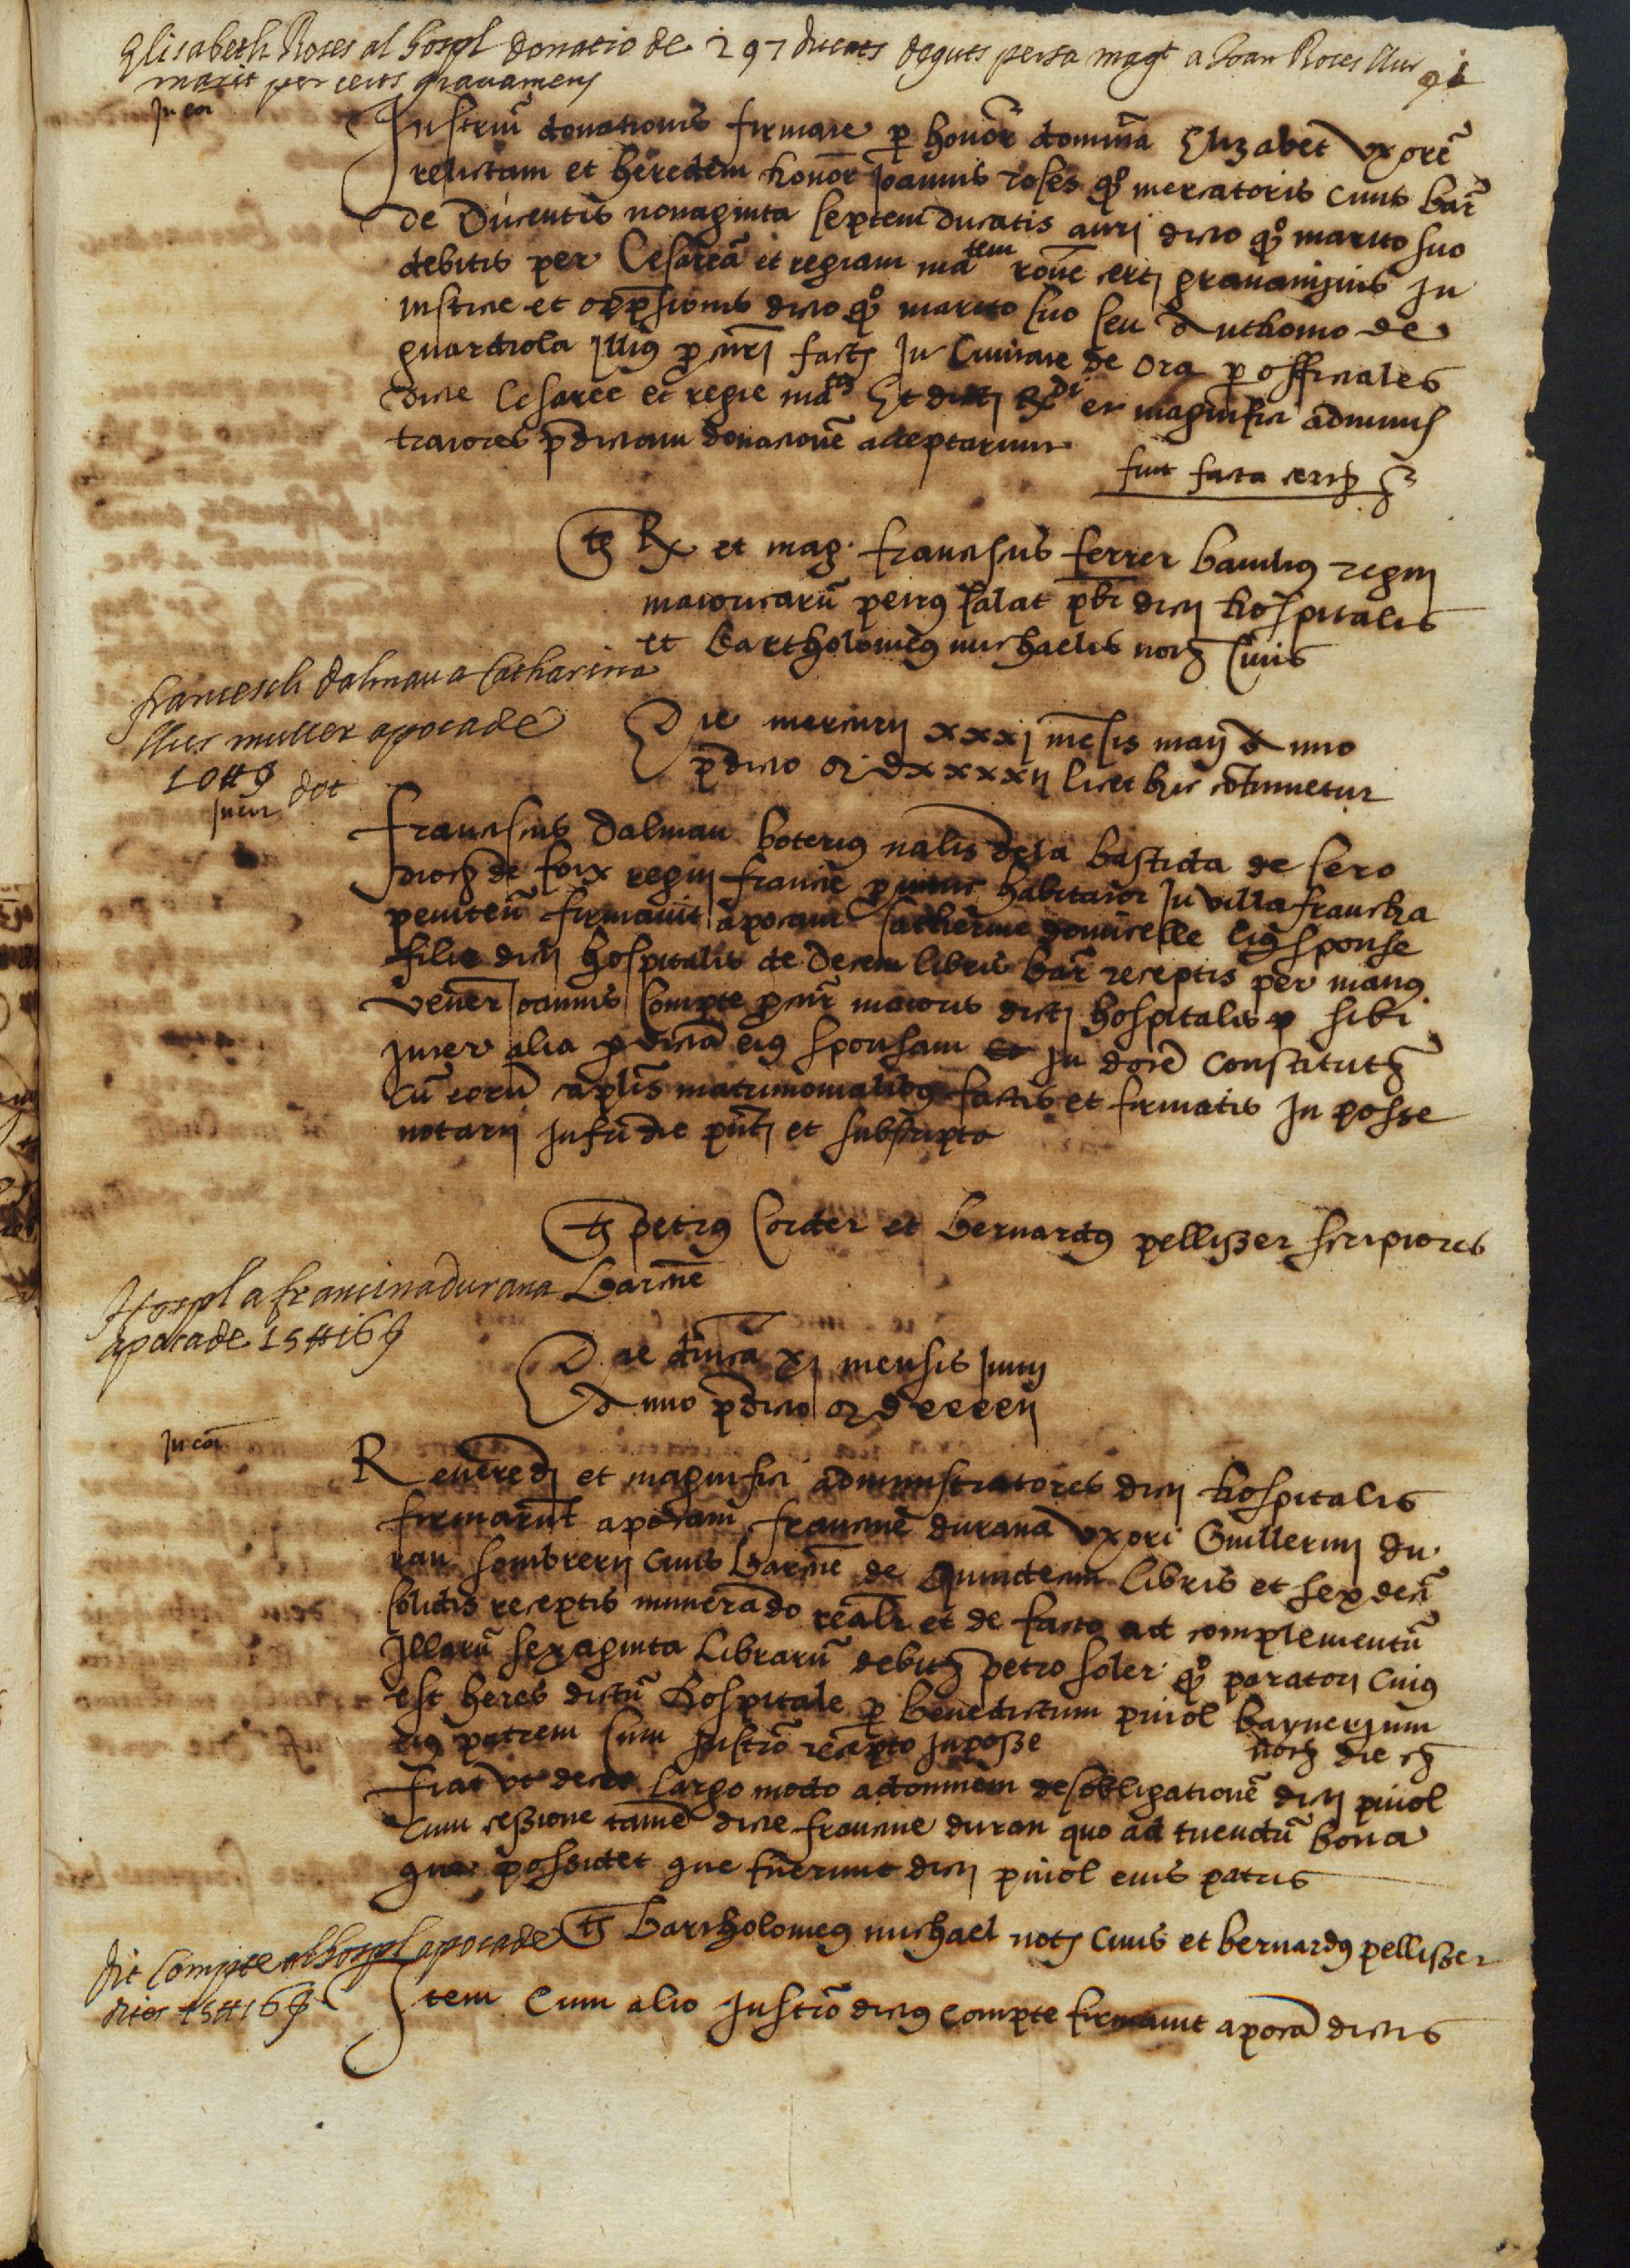 Elisabeth Roses al hospl donatio de 297 ducats deguts per sa magt a Joan Roses llur
marit per certs gravamens
91
In ear
Instrum donationis firmate p honor dominã Elizabet uxorẽ
relictam et heredem honor Joannis roses qº mercatoris civis barᷓ
de Ducentis nonaginta septem ducatis auri dicto qº marito suo
debitis per Cesareã et regiam matem rone certj gravaminis in
iustitie et oppssionis dicto qº marito suo seu Anthonio de
guardiola illius pcurj factj in Civitate de Ora p officiales
dicte Cesaree et regie matis Et dictj Rdi et magnifici adminis
tratores pdictam donationẽ acceptarunt
fuit facta
ts Rx et mag. franciscus ferrer baiulus regnij
maioricarũ petrus salat pbr dicti hospitalis
et Bartholomeus michaelis nots civis
francesch dalmau a Catharina
llur muller apoca de
10 ₶ s
dot
Die mercurij xxxj mẽsis maij Anno
pdicto M Dxxxxij licet hic cõtinuetur
franciscus dalmau boterius nalis de la bastida de sero
diocs de foix regnij francie pnunc habitator in villafrancha
penitẽn firmavit apocam Catherine domicelle eius sponse
filie dicti hospitalis de Decem libris barᷓ receptis per manus
veñer Joannis Compte pcurr maioris dictj hospitalis p sibi
inter alia p dictã eius sponsam in dotẽ constituts
cũ eorũ caplis matrimonialibus factis et firmatis in posse
notarij infr die pntj et subscripto
ts petrus Corder et bernardus pellisser scriptores
Barcnẽ
Hospl a francina durana
apoca de 15 ₶ 16 s
Die dnica xj mensis Junij
Anno pdicto M D xxxxij
In ear
Reverẽdj et magnifici administratores dicti hospitalis
firmarũt apocam francine duranã uxori Guillermj du
ran sombrerij civis barcnẽ de Quindecim libris et sexdecĩ
solidis receptis numerãdo realr et de facto ad complementũ
illarũ sexaginta librarũ debits petro soler qº paratori cuius
est heres dictũ hospitale p benedictum piniol bayneriũm
eius patrem cum instrõ recepto in posse nots die
fiat ut decet largo modo ad omnem desobligationẽ dicti piniol
cum cessione tamẽ dicte francine duran quo ad tuendũ bona
que possidet que fuerunt dicti piniol eius patris
ts Bartholomeus michael nots civis et bernardus pellisser
dit Compte al hospl apoca de
dites 15 ₶ 16 s
Item Cum alio instrõ dictus compte firmavit apocã dictis